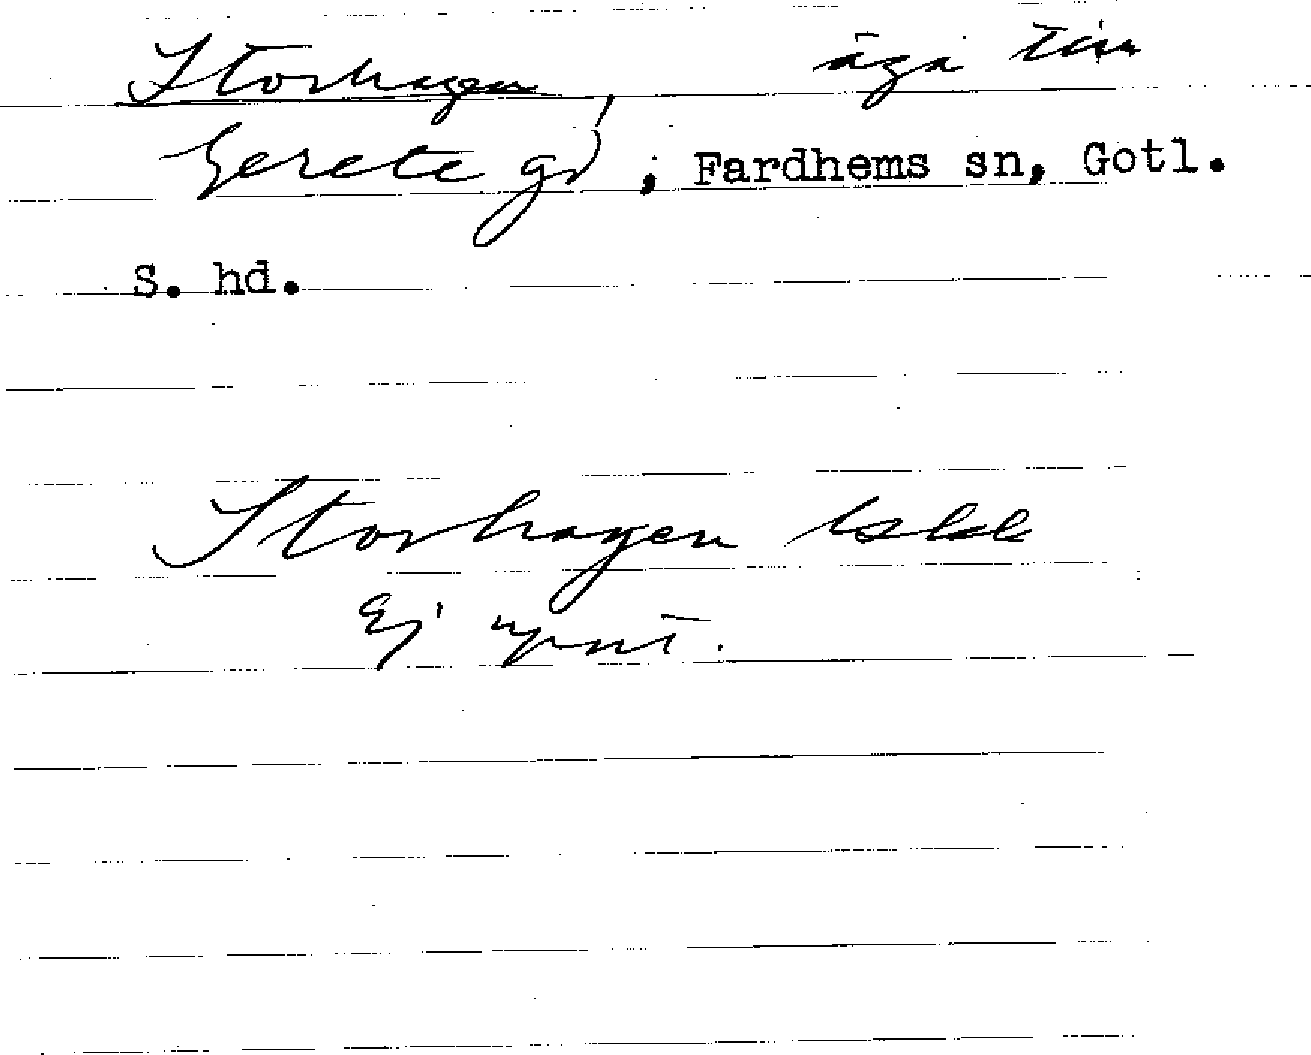 Storhagen, äga
Gerete gd, Fardhems sn, Gotl.
S. hd.
Storhagen
Ej uppmt.